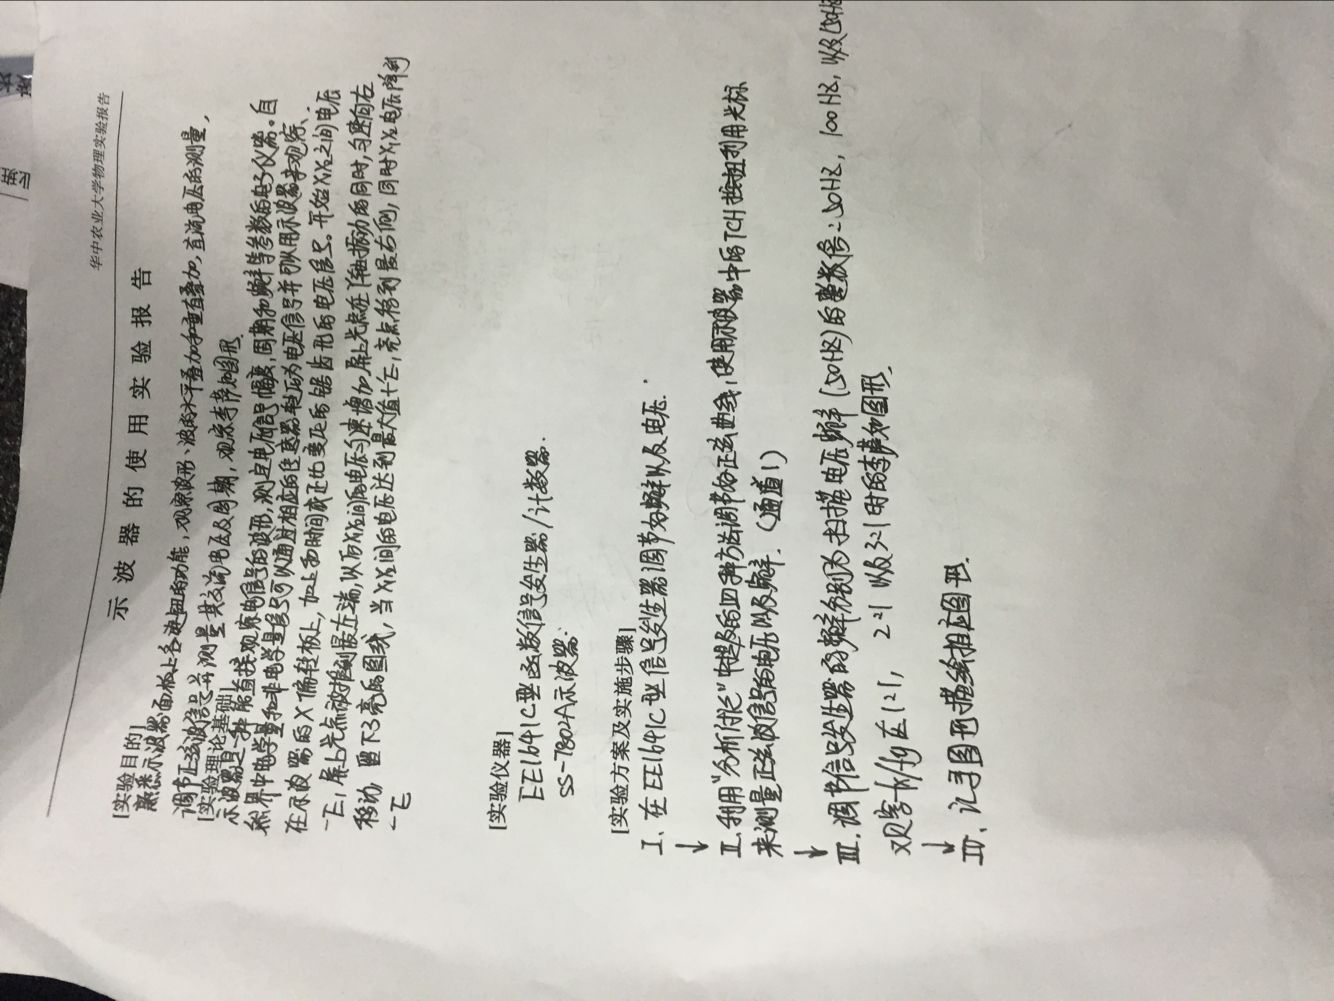 华中农业大学物理实验报告
示波器的使用实验报告
[实验目的]
熟悉示波器面板上各旋钮的功能，观察波形、波的水平叠加和垂直叠加，直流电压的测量，
调节正弦波信号并测量其交流电压及周期，观察李萨如图形.
[实验理论基础]
示波器是一种能直接观察电信号的波形，测定电压信号幅度，周期和频率等参数的电子仪器。自
然界中电学量和非电学量信号可以通过相应的传感器转化为电压信号并可以用示波器来观察.
在示波器的X偏转板上，加上和时间成正比变化的锯齿形的电压信号。开始X₁X₂之间电压
-E，屏上光点被推到最左端，以后X₁X₂间的电压匀速增加屏上光点在Y轴振动的同时，匀速向右
移动，留下了亮的图线，当X₁X₂间的电压达到最大值+E，亮点移到最右侧，同时X₁X₂电压降到
-E
[实验仪器]
EE1641C型函数信号发生器/计数器.
SS-7802A示波器.
[实验方案及实施步骤]
Ⅰ、在EE1641C型信号发生器调节好频率以及电压.
↓
Ⅱ.利用"分析讨论"中提及的四种方法调节好正弦曲线，使用示波器中的TCH按扭利用光标
来测量正弦波信号的电压以及频率.（通道1）
↓
Ⅲ.调节信号发生器的频率分别为扫描电压频率(50HZ)的整数倍:50HZ，100HZ，以及150HZ
观察fx/fy在1:1， 2:1 以及3:1时的李萨如图形.
↓
Ⅳ、记录图形描绘相应图形.
业班